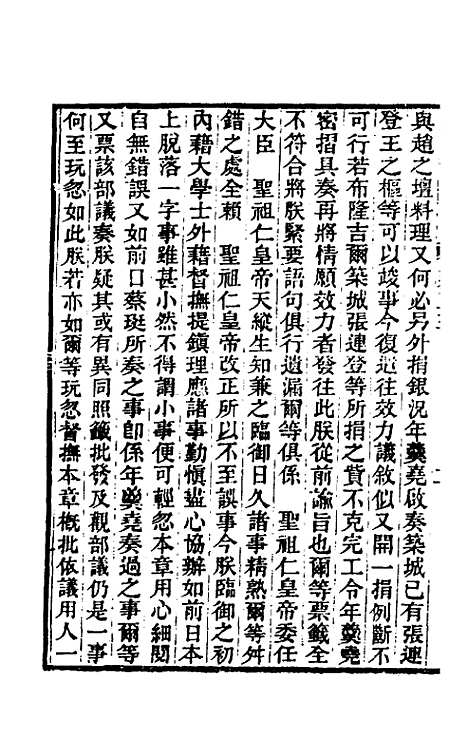 與趙之壇料理又何必另外捐銀況年羹堯啟奏築城已有張連
登王之樞等可以竣事今復遣往效力議敘似又開一捐例斷不
可行若布隆吉爾築城張連登等所捐之貲不克完工令年羹堯
密摺具奏再將情願效力者發往此朕從前諭旨也爾等票籤全
不符合將朕緊要語句俱行遺漏爾等俱係　聖祖仁皇帝委任
大臣　聖祖仁皇帝天縱生知兼之臨御日久諸事精熟爾等舛
錯之處全賴　聖祖仁皇帝改正所以不至誤事今朕臨御之初
內藉大學士外藉督撫提鎮理應諸事勤慎盡心協辦如前日本
上脫落一字事雖甚小然不得謂小事便可輕忽本章用心細閱
自無錯誤又如前口蔡珽所奏之事卽係年羹堯奏過之事爾等
又票該部議奏朕疑其或有異同照籤批發及觀部議仍是一事
何至玩忽如此朕若亦如爾等玩忽督撫本章槪批依議用人一